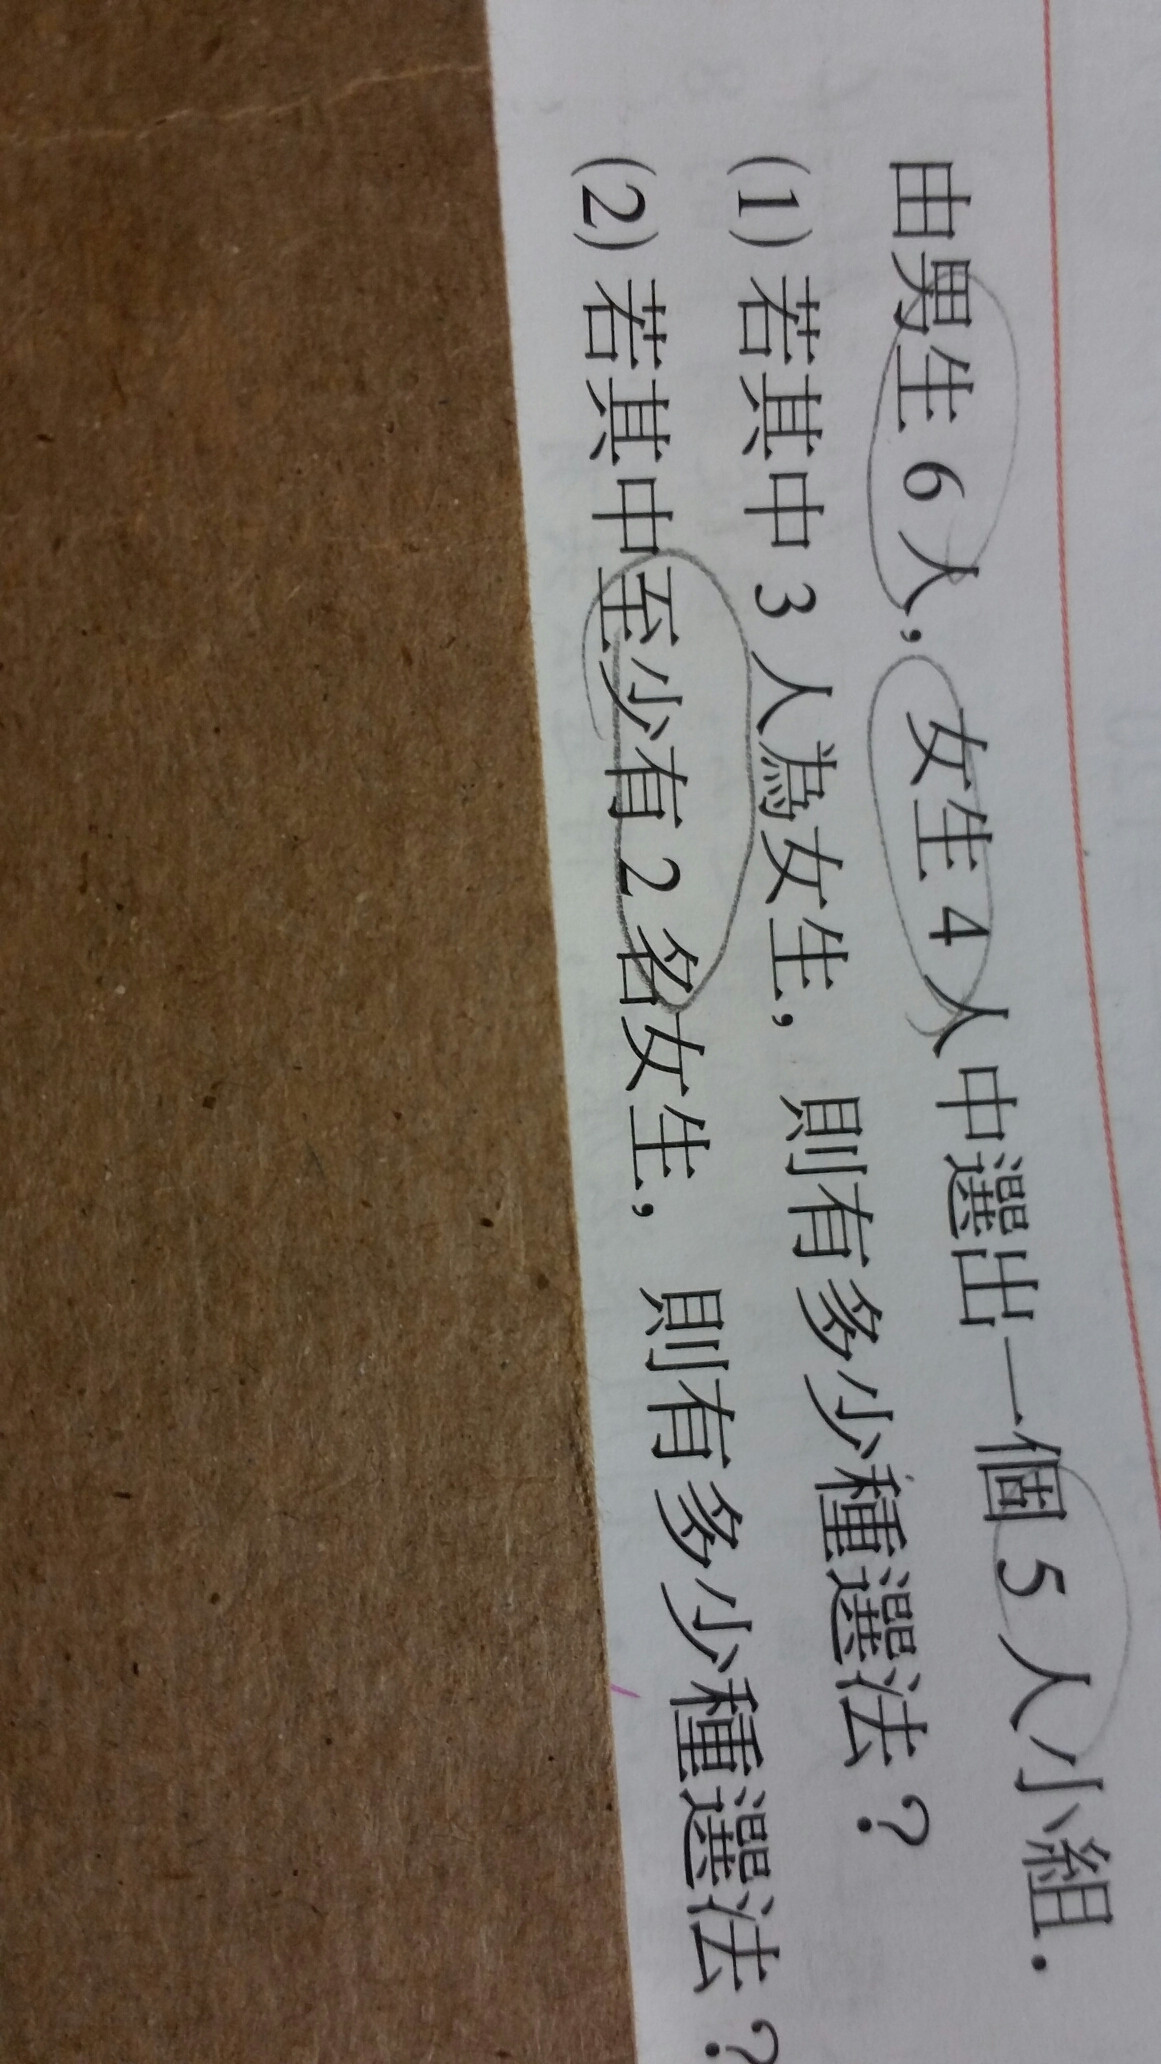 由男生 6 人, 女生 4 人中選出一個 5 人小組.
(1) 若其中 3 人為女生, 則有多少種選法?
(2) 若其中至少有 2 名女生, 則有多少種選法?